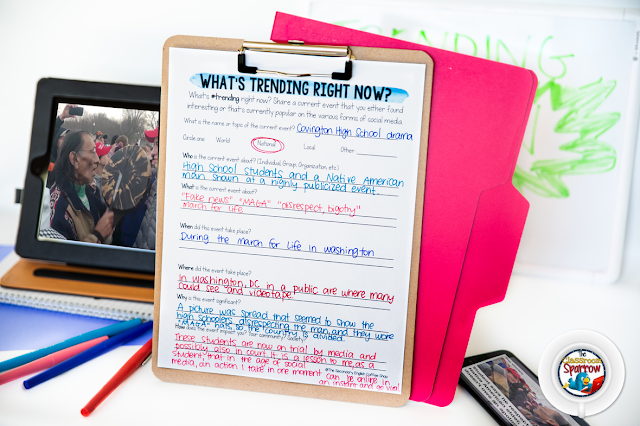 WHAT'S TRENDING RIGHT NOW?
What's #trending right now? Share a current event that you either found
interesting or that's currently popular on the various forms of social media.
What is the name or topic of the current event? Covington High School drama
Circle one: World National Local Other
Who is the current event about? (Individual, Group, Organization, etc.)
High School students and a Native American
man shown at a highly publicized event.
What is the current event about?
"Fake news" "MAGA" "disrespect, bigotry"
march for life.
When did this event take place?
During the march for life in washington
Where did the event take place?
In Washington, DC in a public are where many
could see and videotape.
Why is this event significant?
A picture was spread that seemed to show the
high schoolers disrespecting the man, and they wore
"MAGA" hats, so the country is divided.
How does this event impact you? Your community? Society?
These students are now on trial by media and
possibly also in court. It is a lesson to me, as a
student, that in the age of social
media, an action I take in one moment can be online in
an instant and go viral
©The Secondary English Coffee Shop
TRENDING
The
Classroom
Sparrow